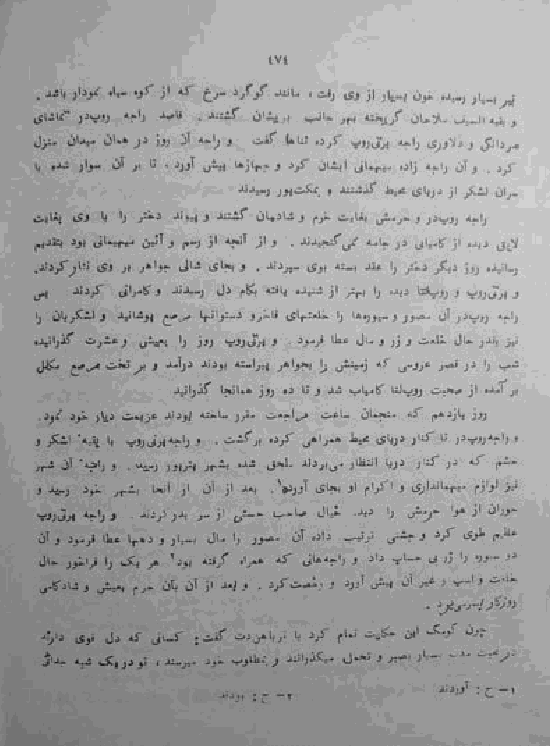 ٤٧٤
تیر بسیار رسیده خون بسیار از وی رفت، مانند گوگرد سرخ که از کوه سیاه نمودار باشد.
و بقیة السیف سلاحان گریخته بهر جانب پریشان گشتند. قاصد راجه روپ‌در تماشای
مردانگی و دلاوری راجه پرتی‌روپ کرده ثناها گفت و راجه آن روز در همان میدان منزل
کرد. و آن راجه زاده میهمانی ایشان کرد و جهازها پیش آورد، تا بر آن سوار شده با
سران لشکر از دریای محیط گذشتند و بمکت‌پور رسیدند
راجه روپ‌در و حرمش بغایت خرم و شادمان گشتند و پیوند دختر را با وی بغایت
لایق دیده از کامیابی در جامه نمی‌گنجیدند. و از آنچه از رسم و آئین میهمانی بود بتقدیم
رسانیده روز دیگر دختر را عقد بسته بوی سپردند. و بجای شالی جواهر بر وی نثار کردند.
و پرتی‌روپ و روپ‌لتا دیده را بهتر از شنیده یافته بکام دل رسیدند و کامرانی کردند پس
راجه روپ‌در آن مصور و سیوره‌ها را خلعتهای فاخره دستوانهای مرصع پوشانید و لشکریان را
نیز بقدر حال خلعت و زر و مال عطا فرمود. و پرتی‌روپ روز را بعیش و عشرت گذرانیده
شب را در قصر عروسی که زمینش را بجواهر پیراسته بودند درآمد و بر تخت مرصع مکلل
بر آمده از صحبت روپ‌لتا کامیاب شد و تا ده روز همانجا گذرانید
روز یازدهم که منجمان ساعت مراجعت مقرر ساخته بودند عزیمت دیار خود نمود.
و راجه روپ‌در تا کنار دریای محیط همراهی کرده برگشت. و راجه پرتی‌روپ با بقیه لشکر و
حشم که در کنار دریا انتظار می‌بردند ملحق شده بشهر پترپور رسید. و راجه آن شهر
نیز لوازم میهمانداری و اکرام او بجای آورد۱. بعد از آن از آنجا بشهر خود رسید و
حوران از هوا حرمش را دید. خیال صاحب حسنی از سر بدر کردند. و راجه پرتی‌روپ
عظیم طوی کرد و جشنی ترتیب داده آن مصور را مال بسیار و دهها عطا فرمود و آن
دو سیوره را زر بی حساب داد و راجه‌هائی که همراه گرفته بود۲ هر یک را فراخور حال
خلعت و اسپ و غیر آن پیش آورد و رخصت کرد. و بعد از آن بآن حرم بعیش و شادکامی
روزگار بسر می‌برد.
چون گومک این حکایت تمام کرد با نرباهن‌دت گفت: کسانی که دل قوی دارند
در محبت مدت بسیار بصبر و تحمل میگذرانند و بمطلوب خود میرسند، تو در یک شبه جدائی
۱ – ح: آوردند
۲ – ح: بودند